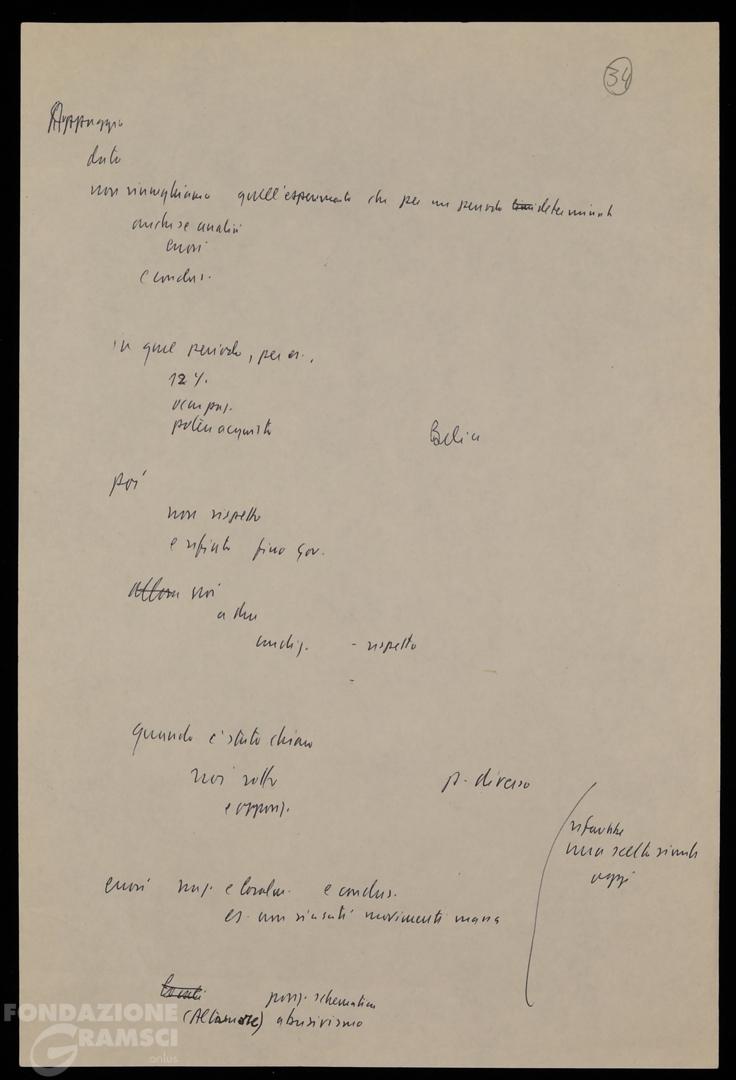 34
Appoggio
dato
non rinneghiamo quell'esperimento che per un periodo determinato
anche se analisi
errori
e conclus.
in quel periodo, per es.,
12%.
occupaz.
poteri acquisto
Belice
poi
non rispetto
e rifiuto fino gov.
allora noi
a due
condiz. - rispetto
-
quando è stato chiaro
noi rotto p. diverso
e oppos.
rifaremmo
una scelta simile
oggi
errori naz. e localm. e conclus.
es. non suscitati movimenti massa
posiz. schematica
(Altamore) abusivismo
FONDAZIONE
GRAMSCI
onlus